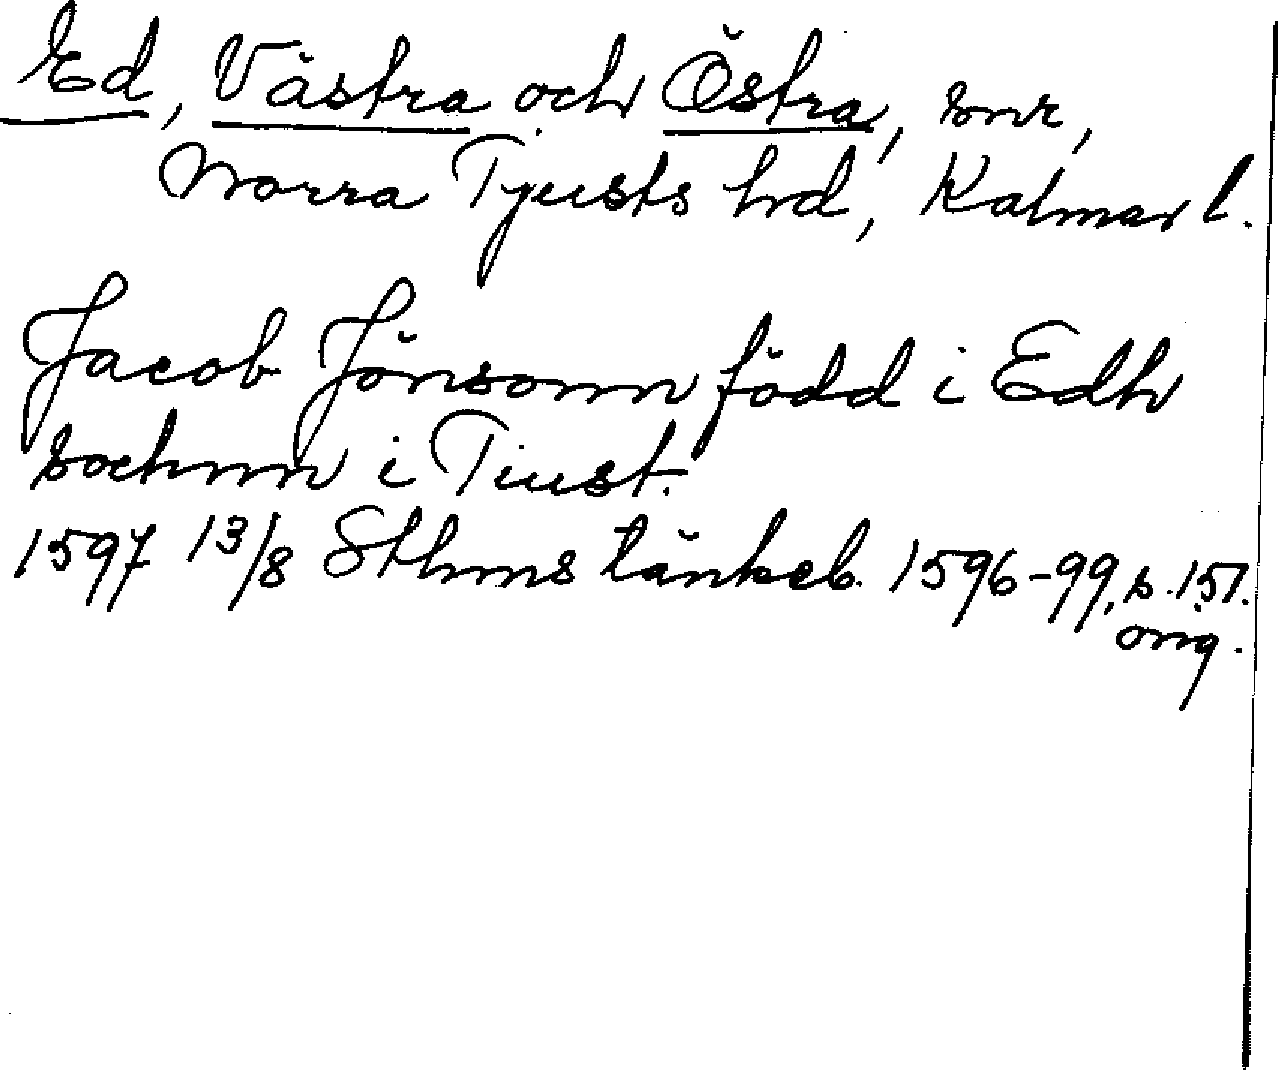 Ed, Västra och Östra, snr,
Norra Tjusts hrd, Kalmar l.
Jacob Jönsonn född i Edh
sochnn i Tiust.
1597 13/8 Sthms tänkeb. 1596-99, s. 157.
orig.